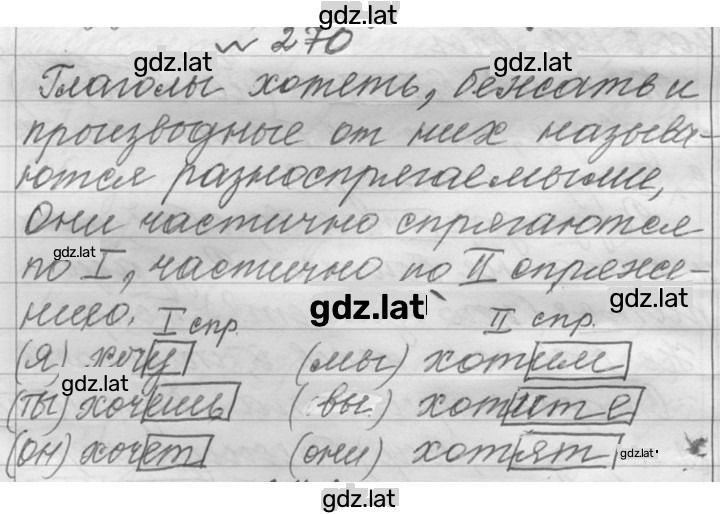 gdz.lat
№ 270
gdz.lat gdz.lat
Глаголы хотеть, бежать и
производные от них называ-
ются разноспрягаемыми,
Они частично спрягаются
gdz.lat
по I, частично по II спряже-
нию.
gdz.lat gdz.lat
I спр. II спр.
(я) хочу (мы) хотим
gdz.lat
(ты) хочешь (вы) хотите
(он) хочет (они) хотят gdz.lat
gdz.lat